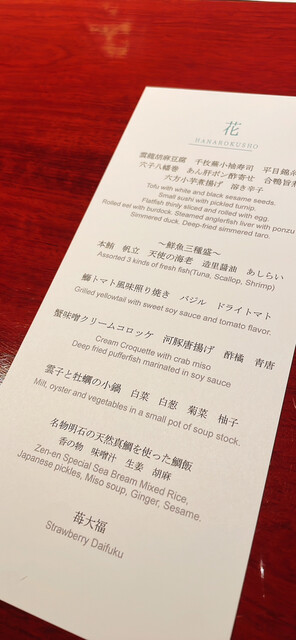 花
HANAROKUSHO
雲龍胡麻豆腐　千枚蕪小袖寿司　平目錦糸
穴子八幡巻　あん肝ポン酢寄せ　合鴨旨煮
六方小芋素揚げ　溶き辛子
Tofu with white and black sesame seeds.
Small sushi with pickled turnip.
Flatfish thinly sliced and rolled with egg.
Rolled eel with burdock. Steamed anglerfish liver with ponzu
Simmered duck. Deep-fried simmered taro.
～鮮魚三種盛～
本鮪　帆立　天使の海老　造里醤油　あしらい
Assorted 3 kinds of fresh fish(Tuna, Scallop, Shrimp)
鰤トマト風味照り焼き　バジル　ドライトマト
Grilled yellowtail with sweet soy sauce and tomato flavor.
蟹味噌クリームコロッケ　河豚唐揚げ　酢橘　青唐
Cream Croquette with crab miso
Deep fried pufferfish marinated in soy sauce
雲子と牡蠣の小鍋　白菜　白葱　菊菜　柚子
Milt, oyster and vegetables in a small pot of soup stock.
名物明石の天然真鯛を使った鯛飯
香の物　味噌汁　生姜　胡麻
Zen-en Special Sea Bream Mixed Rice,
Japanese pickles, Miso soup, Ginger, Sesame.
苺大福
Strawberry Daifuku